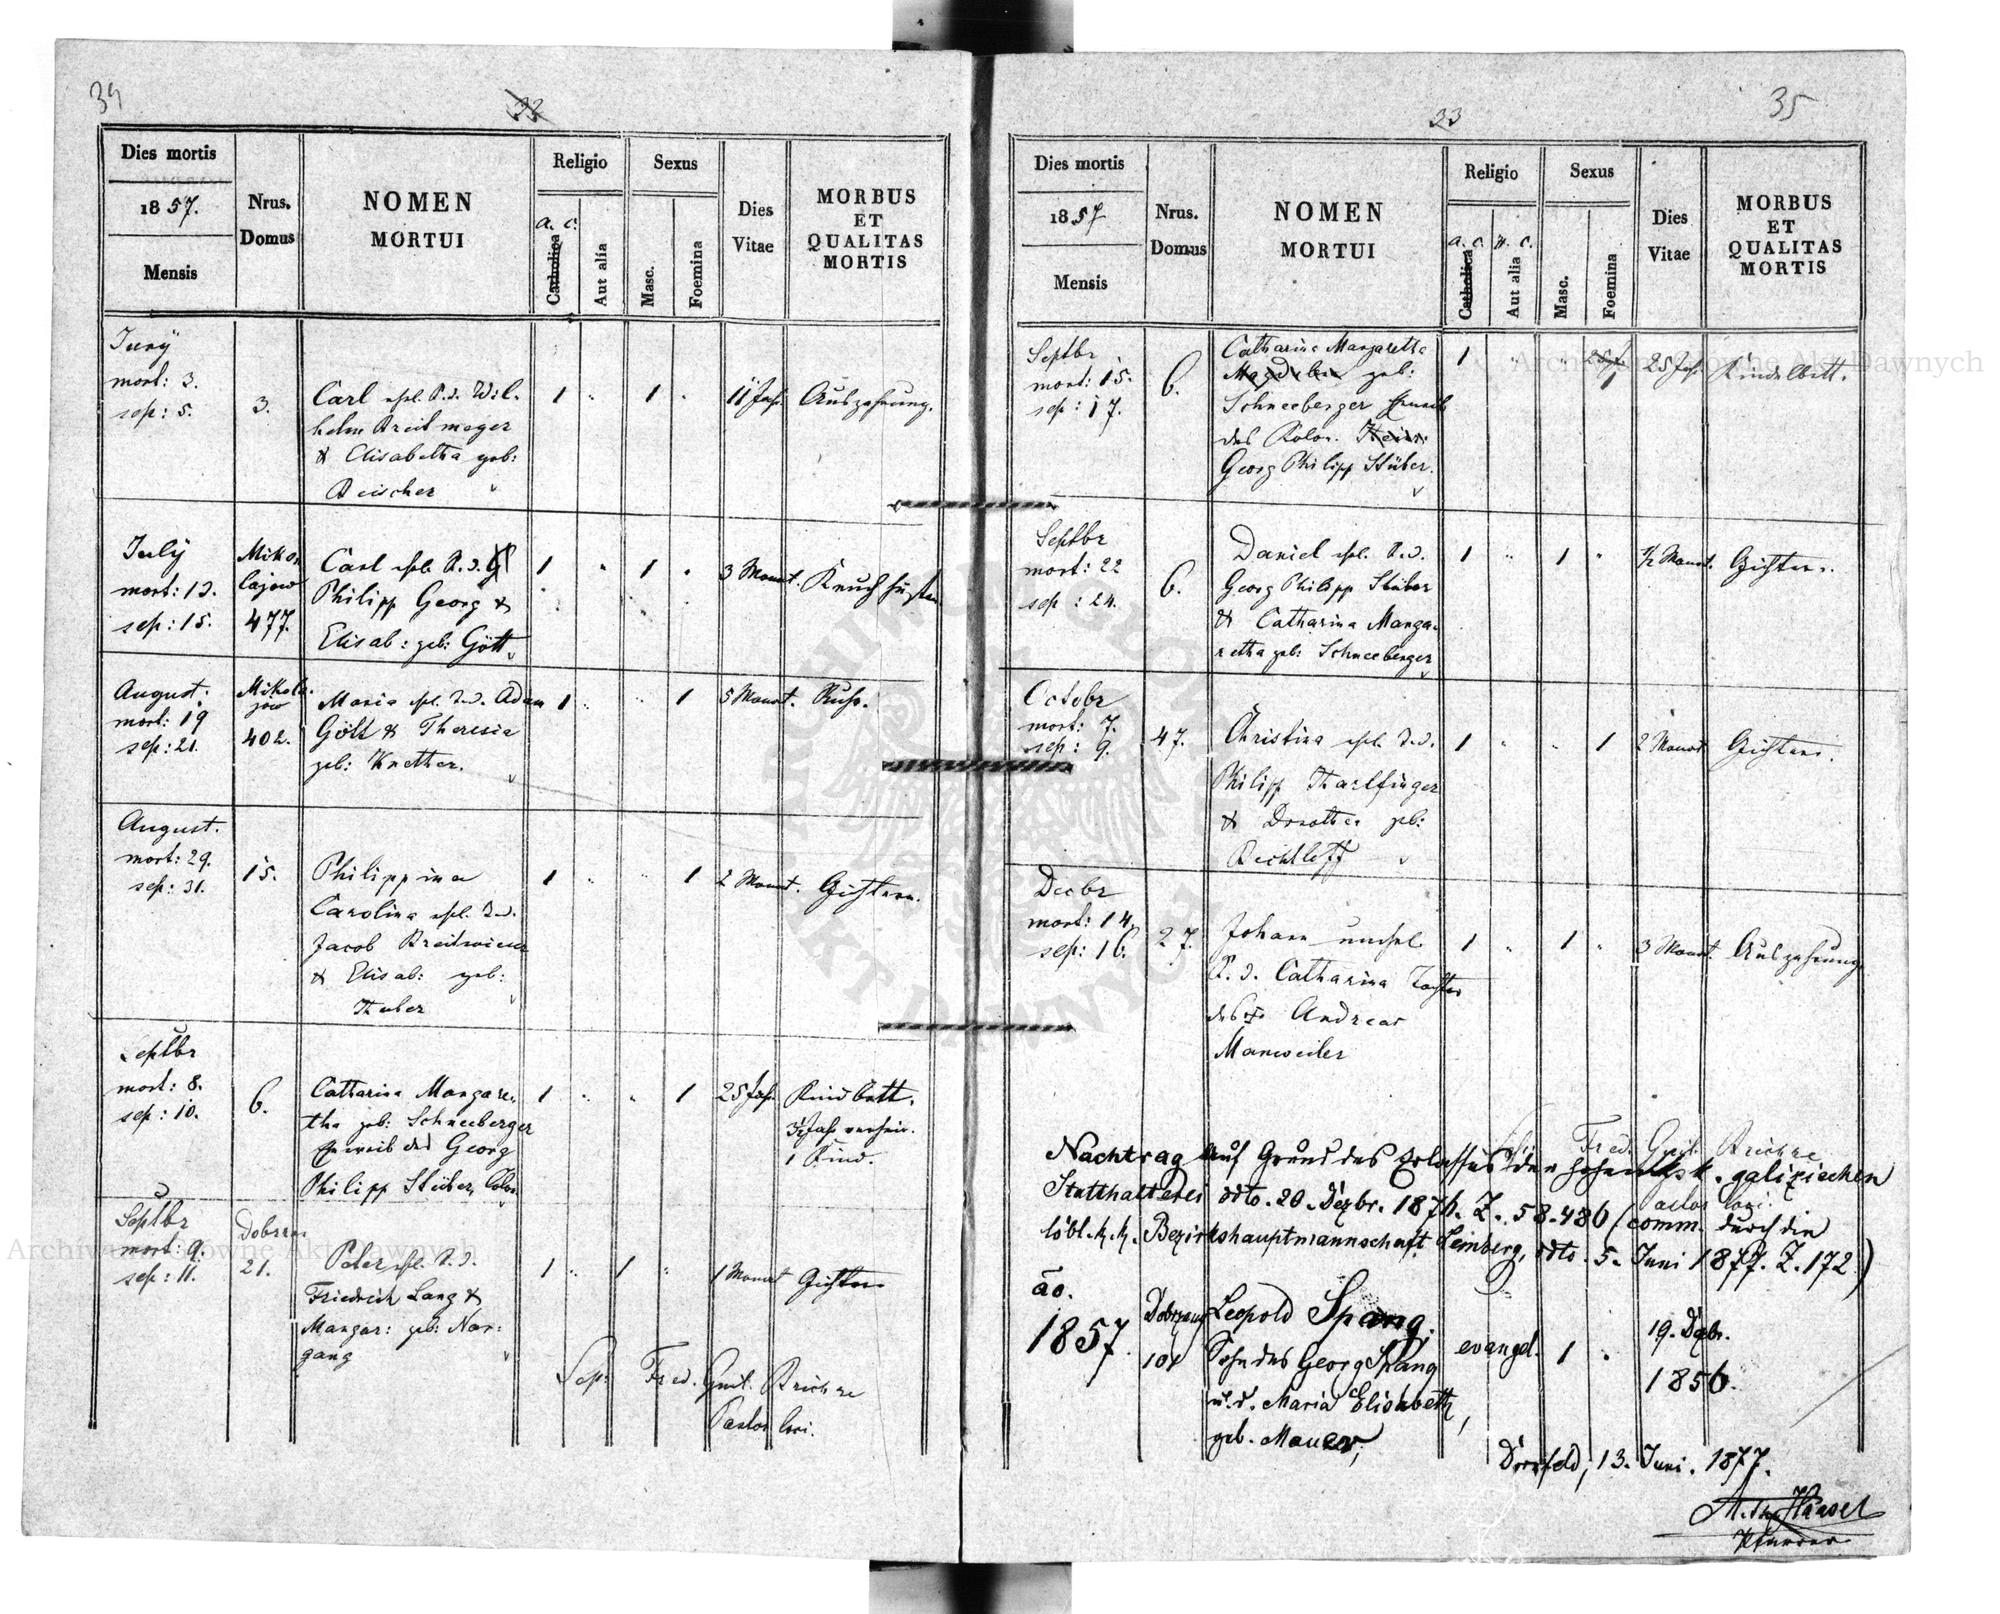 34
32
Dies mortis
1857.
Mensis
Nrus.
Domus
NOMEN
MORTUI
Religio
a. c.
Catholica
Aut alia
Sexus
Masc.
Foemina
Dies
Vitae
MORBUS
ET
QUALITAS
MORTIS
Juny
mort: 3.
sep: 5.
3.
Carl ehel. K. d. Wil-
helm Breitmayer
& Elisabetha geb:
Reischer
1 " 1 "
11 Jah.
Auszehrung.
July
mort: 13.
sep: 15.
Miko-
lajow
477.
Carl ehel. K. d.
Philipp Georg &
Elisab: geb: Gött
1 " 1 "
3 Monat.
Keuchhusten
August.
mort: 19
sep: 21.
Mikola-
jow
402.
Maria ehel. K. d. Adam
Gött & Theresia
geb: Knether.
1 " " 1
5 Monat.
Ruhr.
August.
mort: 29.
sep: 31.
15.
Philippina
Carolina ehel. K. d.
Jacob Breitwieser
& Elisab: geb:
Huber
1 " " 1
2 Monat.
Gichtern.
Septbr
mort: 8.
sep: 10.
6.
Catharina Margare-
tha geb: Schneeberger
Eheweib des Georg
Philipp Stüber, Colon.
1 " " 1
25 Jah.
Kindbett.
3 1/2 Jah verheir.
1 Kind.
Septbr
mort: 9.
sep: 11.
21.
Peter ehel. K. d.
Friedrich Lang &
Margar: geb: Nar-
gang
1 " 1 "
1 Monat
Gichtern
Sep: Fred. Guil. Reichze
Pastor loci.
35
33
Dies mortis
1857
Mensis
Nrus.
Domus
NOMEN
MORTUI
Religio
a. c.
Catholica
H. c.
Aut alia
Sexus
Masc.
Foemina
Dies
Vitae
MORBUS
ET
QUALITAS
MORTIS
Septbr
mort: 15.
sep: 17.
6.
Catharina Margaretha
Magdalen geb:
Schneeberger Eheweib
des Kolon. Heinr.
Georg Philipp Stüber.
1 " "
25 J.
25 Jah.
Kindelbett.
Septbr
mort: 22
sep: 24.
6.
Daniel ehel. K. d.
Georg Philipp Stüber
& Catharina Marga-
retha geb: Schneeberger
1 " 1 "
1/2 Monat.
Gichtern.
Octobr
mort: 7.
sep: 9.
47.
Christina ehel. K. d.
Philipp Harlfinger
& Dorothea geb:
Bechtloff
1 " " 1
2 Monat
Gichtern.
Decbr
mort: 14.
sep: 16.
27.
Johann unehel.
K. d. Catharina Tochter
des Andreas
Manweiler
1 " 1 "
3 Monat.
Auszehrung
Fred. Guil. Reichze
Pastor loci.
Nachtrag Auf Grund des Erlasses der hohen k. k. galizischen
Statthalterei ddto. 20. Dezbr. 1876. Z. 58.486 (comm. durch die
löbl. k. k. Bezirkshauptmannschaft Lemberg, ddto. 5. Juni 1877. Z. 172)
ao.
1857.
Dobrzany
101
Leopold Spang.
Sohn des Georg Spang
u. d. Maria Elisabeth,
geb. Mauer,
evangel.
1 "
19. Dezbr.
1856.
Dornfeld, 13. Juni. 1877.
Pfarrer
Archiwum Główne Akt Dawnych
Archiwum Główne Akt Dawnych
ARCHIWUM GŁÓWNE
AKT DAWNYCH